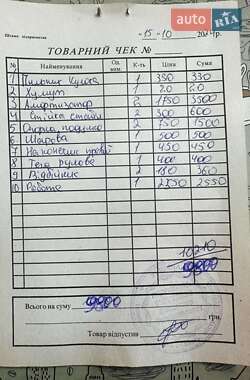 AUTO RIA
Штамп підприємства
«15» 10 2024р.
ТОВАРНИЙ ЧЕК №
№ Найменування Од. вим. К-ть Ціна Сума
1 Пильник Кулога 1 330 330
2 Хумут 1 20 20
3 Амортизатор 2 1750 3500
4 Стійка стабіл 2 300 600
5 Опорна подушка 2 750 1500
6 Шарова 1 500 500
7 Наконечник правий 1 450 450
8 Тяга рулєва 1 400 400
9 Відбійник 2 180 360
10 Работа 1 2550 2550
10210
9800
Всього на суму 9800
грн.
Товар відпустив